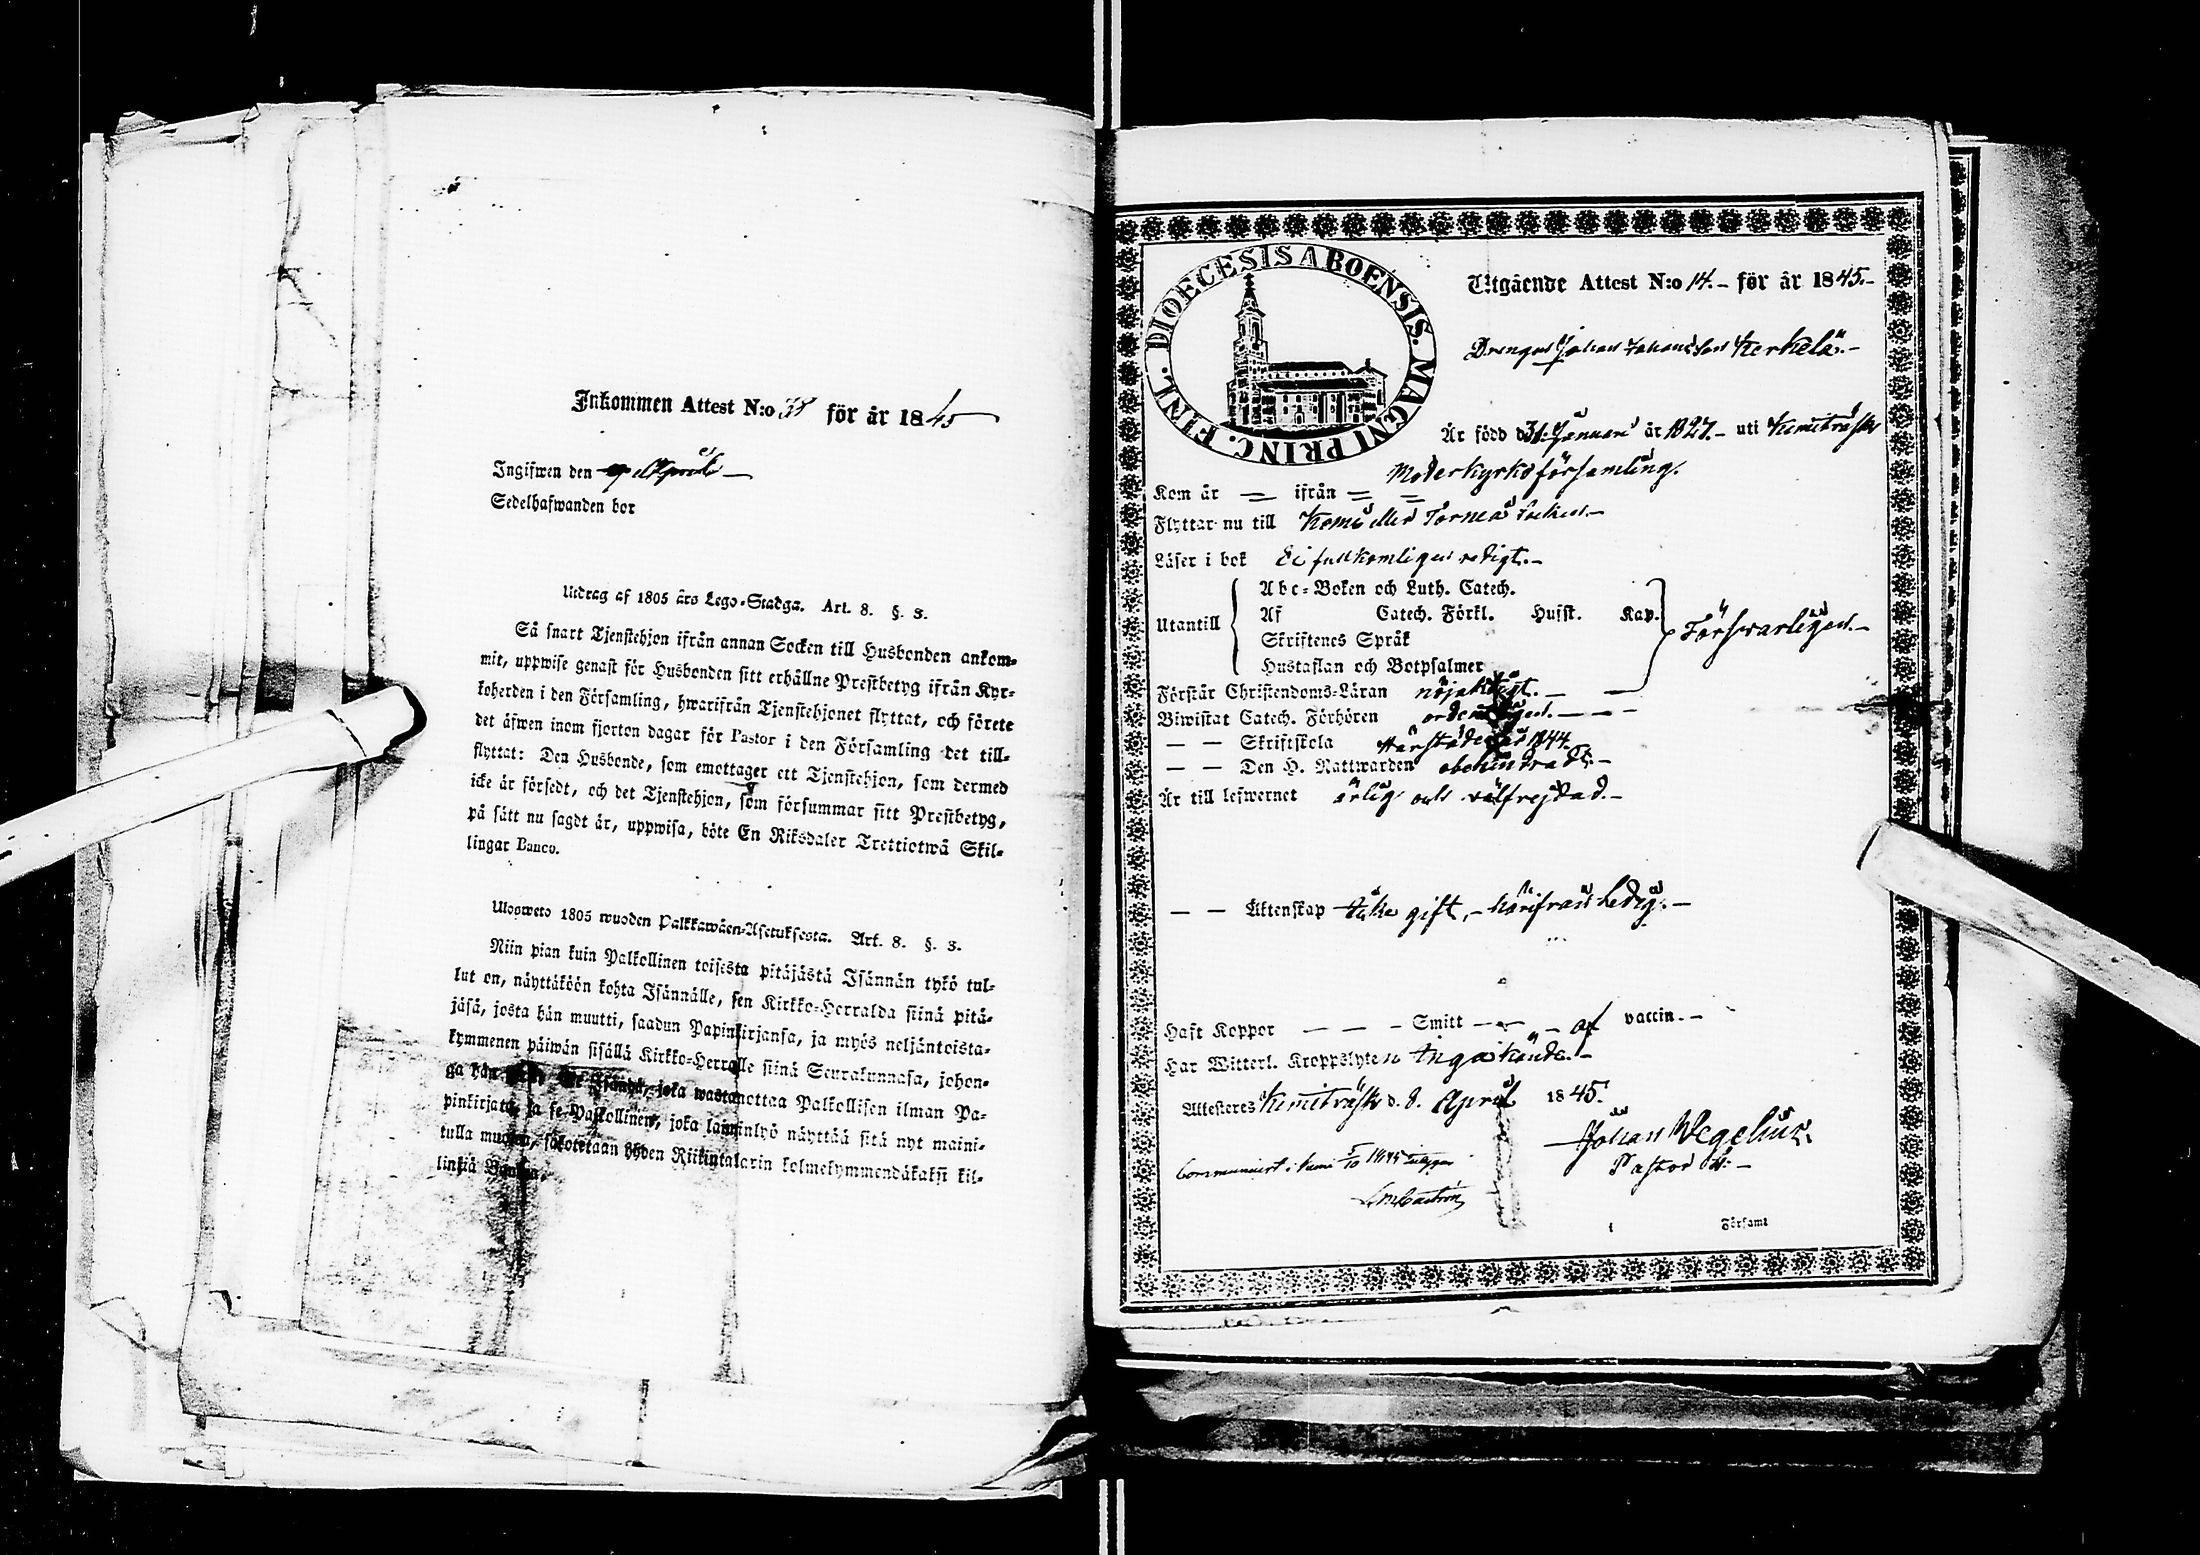 Inkommen Attest N:o 38 för år 1845
Ingifwen den April
Sedelhafwanden bor
Utdrag af 1805 års Lego-Stadga. Art. 8. §. 3.
Så snart Tjenstehjon ifrån annan Socken till Husbonden ankom-
mit, uppwise genast för Husbonden sitt erhållne Prestbetyg ifrån Kyr-
koherden i den Församling, hwarifrån Tjenstehjonet flyttat, och förete
det äfwen inom fjorton dagar för Pastor i den Församling det till-
flyttat: Den Husbonde, som emottager ett Tjenstehjon, som dermed
icke är försedt, och det Tjenstehjon, som försummar sitt Prestbetyg,
på sätt nu sagdt är, uppwisa, böte En Riksdaler Trettiotwå Skil-
lingar Banco.
Ulosweto 1805 wuoden Palkkawäen-Asetuksesta. Art. 8. §. 3.
Niin pian kuin Palkollinen toisesta pitäjästä Isännän tykö tul-
lut on, näyttäköön kohta Isännälle, sen Kirkko-Herralda siinä pitä-
jäsä, josta hän muutti, saadun Papinkirjansa, ja myös neljäntoista-
kymmenen päiwän sisällä Kirkko-Herralle siinä Seurakunnasa, johon-
ga hän Isäntä, joka wastanottaa Palkollisen ilman Pa-
pinkirjata, ja se Palkollinen, joka laiminlyö näyttää sitä nyt maini-
tulla muodon, sakotetaan yhden Riikintalarin kolmekymmendäkaksi kil-
linkiä
DIOECESIS ABOENSIS. MAGNI PRINC. FINL.
Utgående Attest N:o 14.- för år 1845.-
Drengen Johan Johansson Kerkelä.-
Är född d. 31. Januari år 1827.- uti Kemiträsk
Moderkyrkoförsamling.
Kom år = ifrån = =
Flyttar nu till Kemi eller Torneå Socken.-
Läser i bok Ei fullkomligen redigt.-
Utantill
Abc-Boken och Luth. Catech.
Af Catech. Förkl. Husft. Kap.
Skriftenes Språk
Hustaflan och Botpsalmer
Försvarligen.-
Förstår Christendoms-Läran nöjaktigt.- -
Biwistat Catech. Förhören ordentligen.- - -
- - Skriftskola 1844.
- - Den H. Nattwarden obehindradt.-
Är till lefwernet ärlig och välfrejdad.-
- - Äktenskap Icke gift,- härifrån ledig.-
Haft Koppor - - - Smitt - - - af vaccin. -
Har Witterl. Kroppslyten Inga kända.-
Attesteres Kemiträsk d. 8. April 1845.
Johan Wegelius.
Pastor
Communicert i Kemi 5/10 1845
Castrén
i Församl